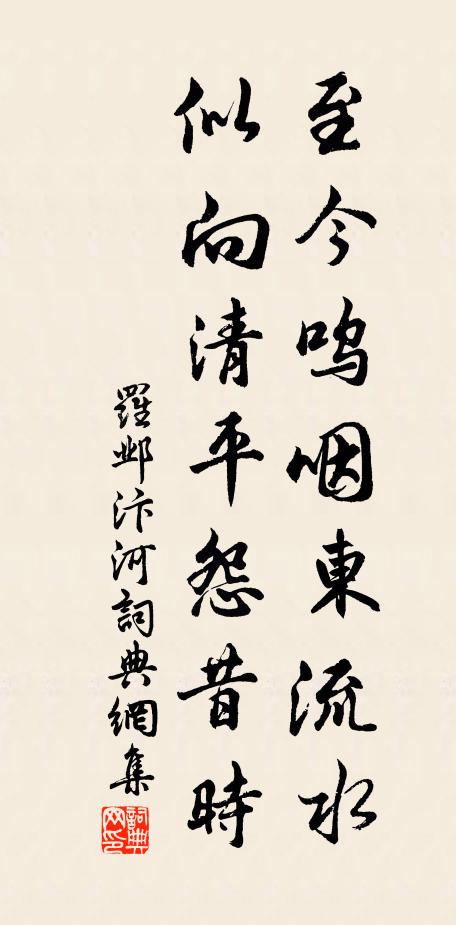 至今嗚咽東流水
似向清平怨昔時
羅鄴汴河詞典網集
詞典网印